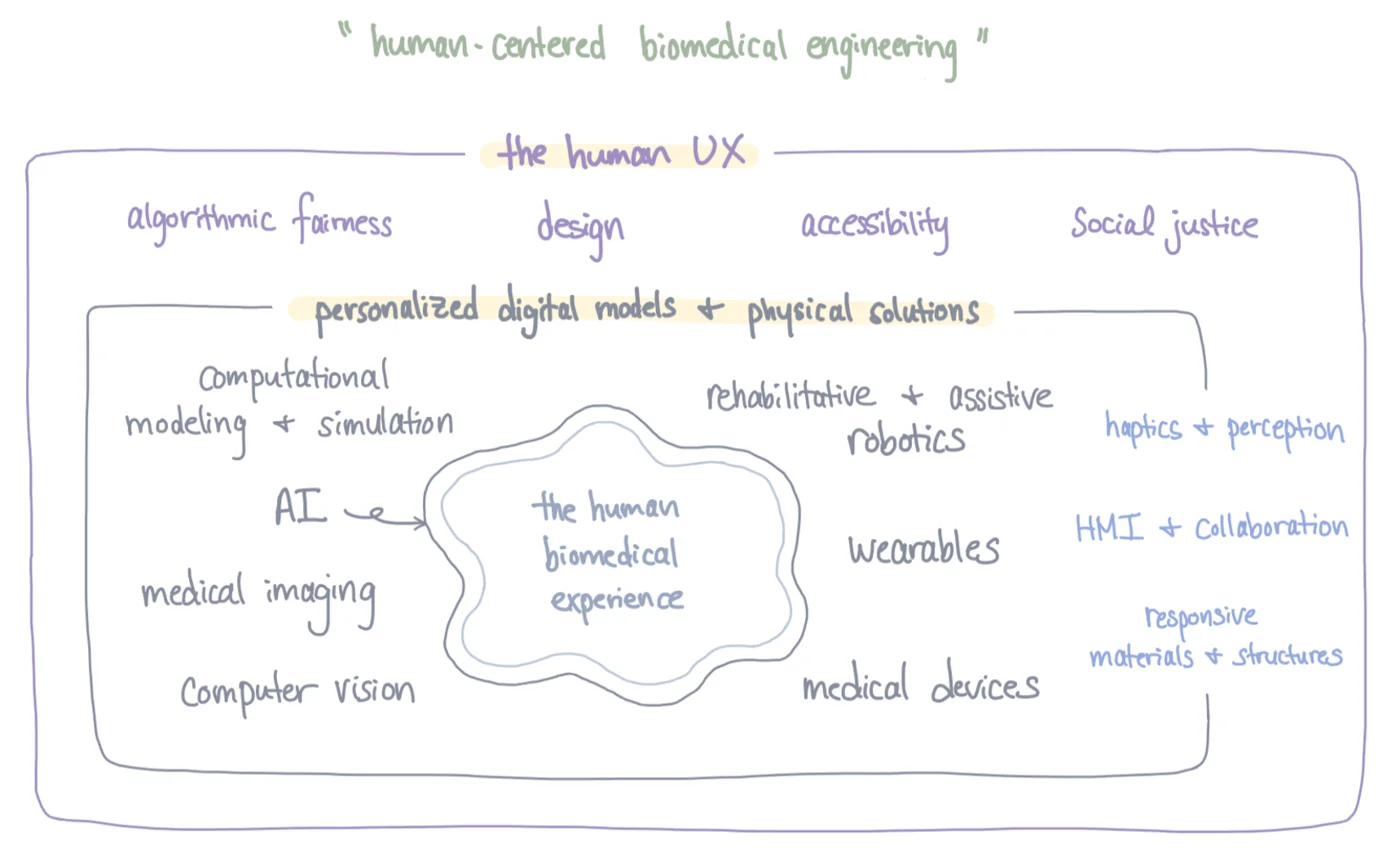 " human-centered biomedical engineering "
the human UX
algorithmic fairness
design
accessibility
Social justice
personalized digital models + physical solutions
Computational
modeling + simulation
AI
medical imaging
Computer vision
the human
biomedical
experience
rehabilitative + assistive
robotics
wearables
medical devices
haptics + perception
HMI + Collaboration
responsive
materials + structures